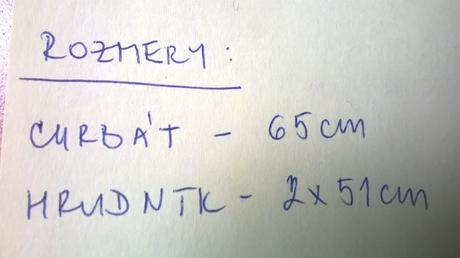 ROZMERY:
CHRBÁT - 65cm
HRUDNÍK - 2x51cm